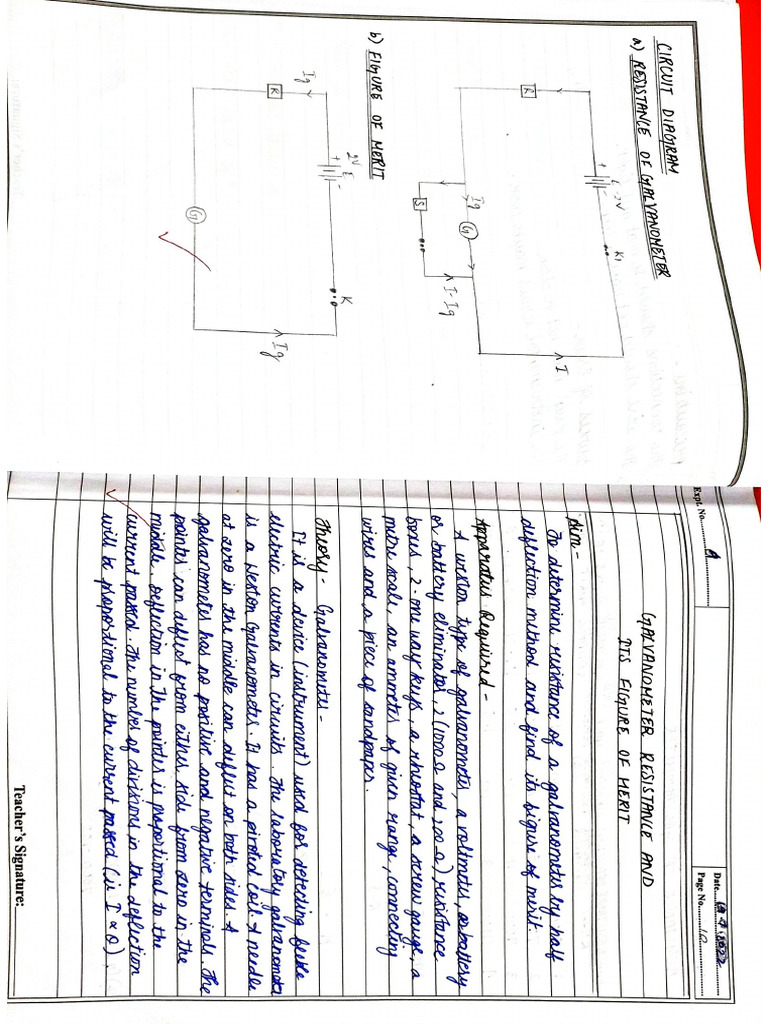 CIRCUIT DIAGRAM
a) RESISTANCE OF GALVANOMETER
E=2V
K1
R
I
Ig
G
S
I-Ig
b) FIGURE OF MERIT
2V E
K
R
Ig
G
Ig
Expt. No. 9
Date 19.7.2022
Page No. 10
GALVANOMETER RESISTANCE AND
ITS FIGURE OF MERIT
Aim -
To determine resistance of a galvanometer by half
deflection method and find its figure of merit.
Apparatus Required -
A weston type of galvanometer, a voltmeter, a battery
or battery eliminator, 2 (1000 Ω and 200 Ω) resistance
boxes, 2-one way keys, a rheostat, a screw gauge, a
metre scale, an ammeter of given range, connecting
wires and a piece of sandpaper.
Theory - Galvanometer -
It is a device (instrument) used for detecting feeble
electric currents in circuits. The laboratory galvanometer
is a Weston Galvanometer. It has a pivoted coil. A needle
at zero in the middle can deflect on both sides. A
galvanometer has no positive and negative terminals. The
pointer can deflect from either side from zero in the
middle. Deflection in the pointer is proportional to the
current passed. The number of divisions in the deflection
will be proportional to the current passed (ie I ∝ θ).
Teacher's Signature: